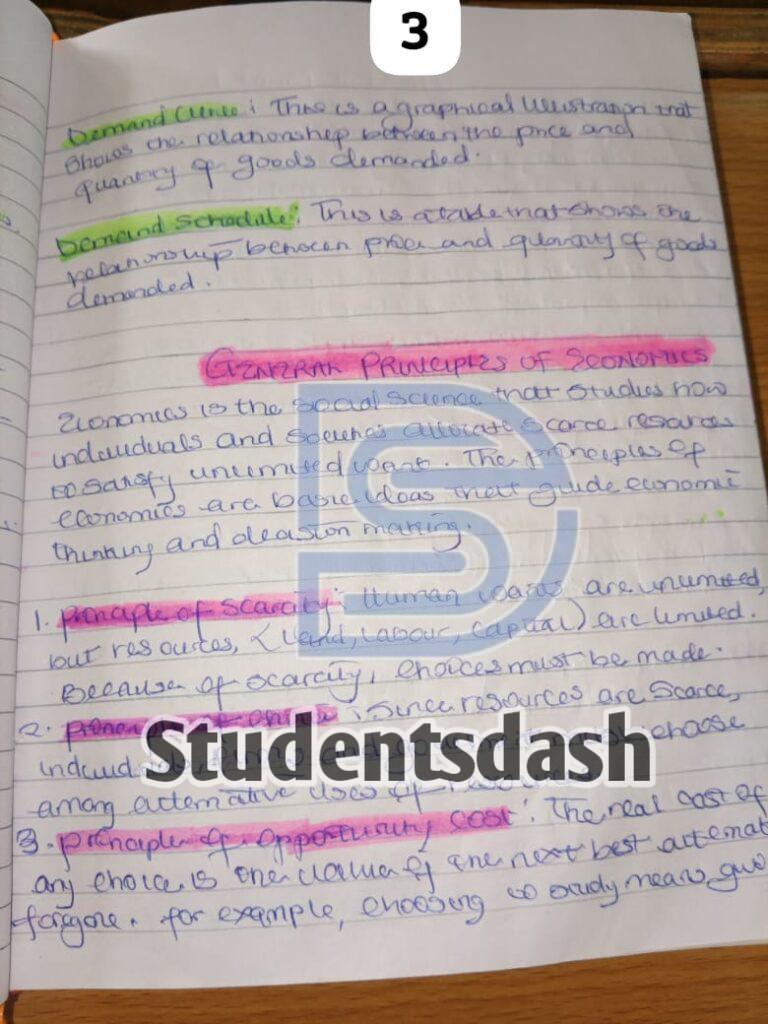 3
Demand Curve : This is a graphical illustration that
shows the relationship between the price and
quantity of goods demanded.
Demand Schedule : This is a table that shows the
relationship between price and quantity of goods
demanded.
GENERAL PRINCIPLES OF ECONOMICS
Economics is the social science that studies how
individuals and societies allocate scarce resources
to satisfy unlimited want. The principles of
economics are basic ideas that guide economic
thinking and decision making.
1. principle of scarcity : Human wants are unlimited,
but resources, (land, labour, capital) are limited.
Because of scarcity, choices must be made.
2. : Since resources are scarce,
choose
Studentsdash
among alternative uses of
3. principle of opportunity cost : The real cost of
any choice is the value of the next best alternat
forgone. for example, choosing to study means